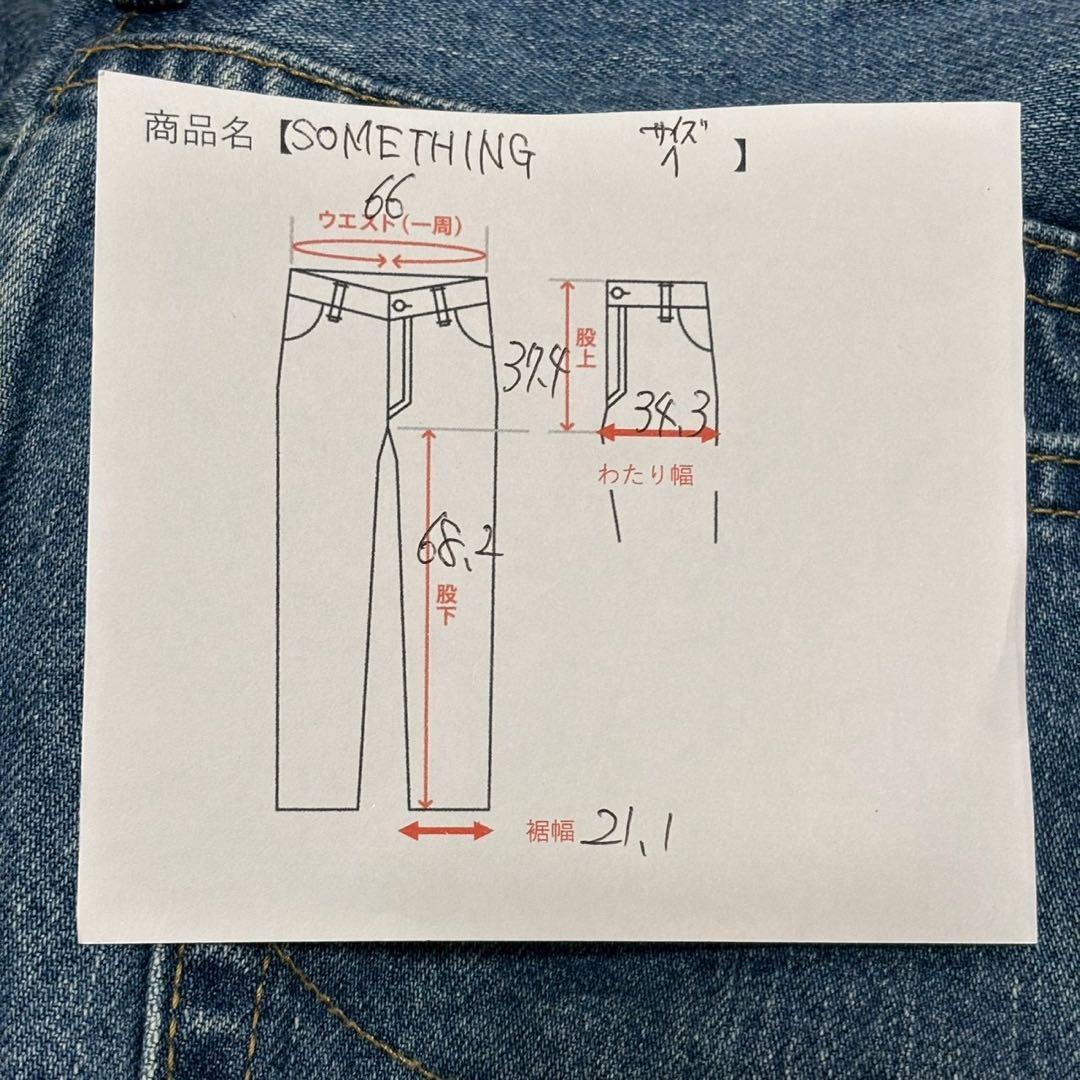 商品名【SOMETHING サイズ 1】
66
ウエスト(一周)
37.4
股上
34.3
わたり幅
68.2
股下
裾幅 21.1